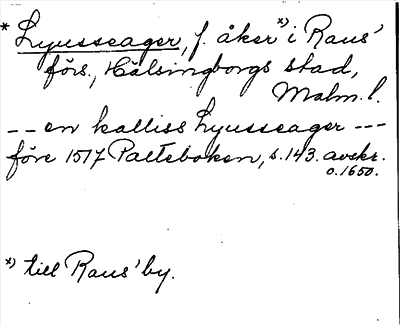 * Lyusseager, f. åker *) i Raus'
förs., Hälsingborgs stad,
Malm. l.
-- en kalliss Lyusseager ---
före 1517 Palteboken, s. 143. avskr.
o. 1650.
*) till Raus' by.